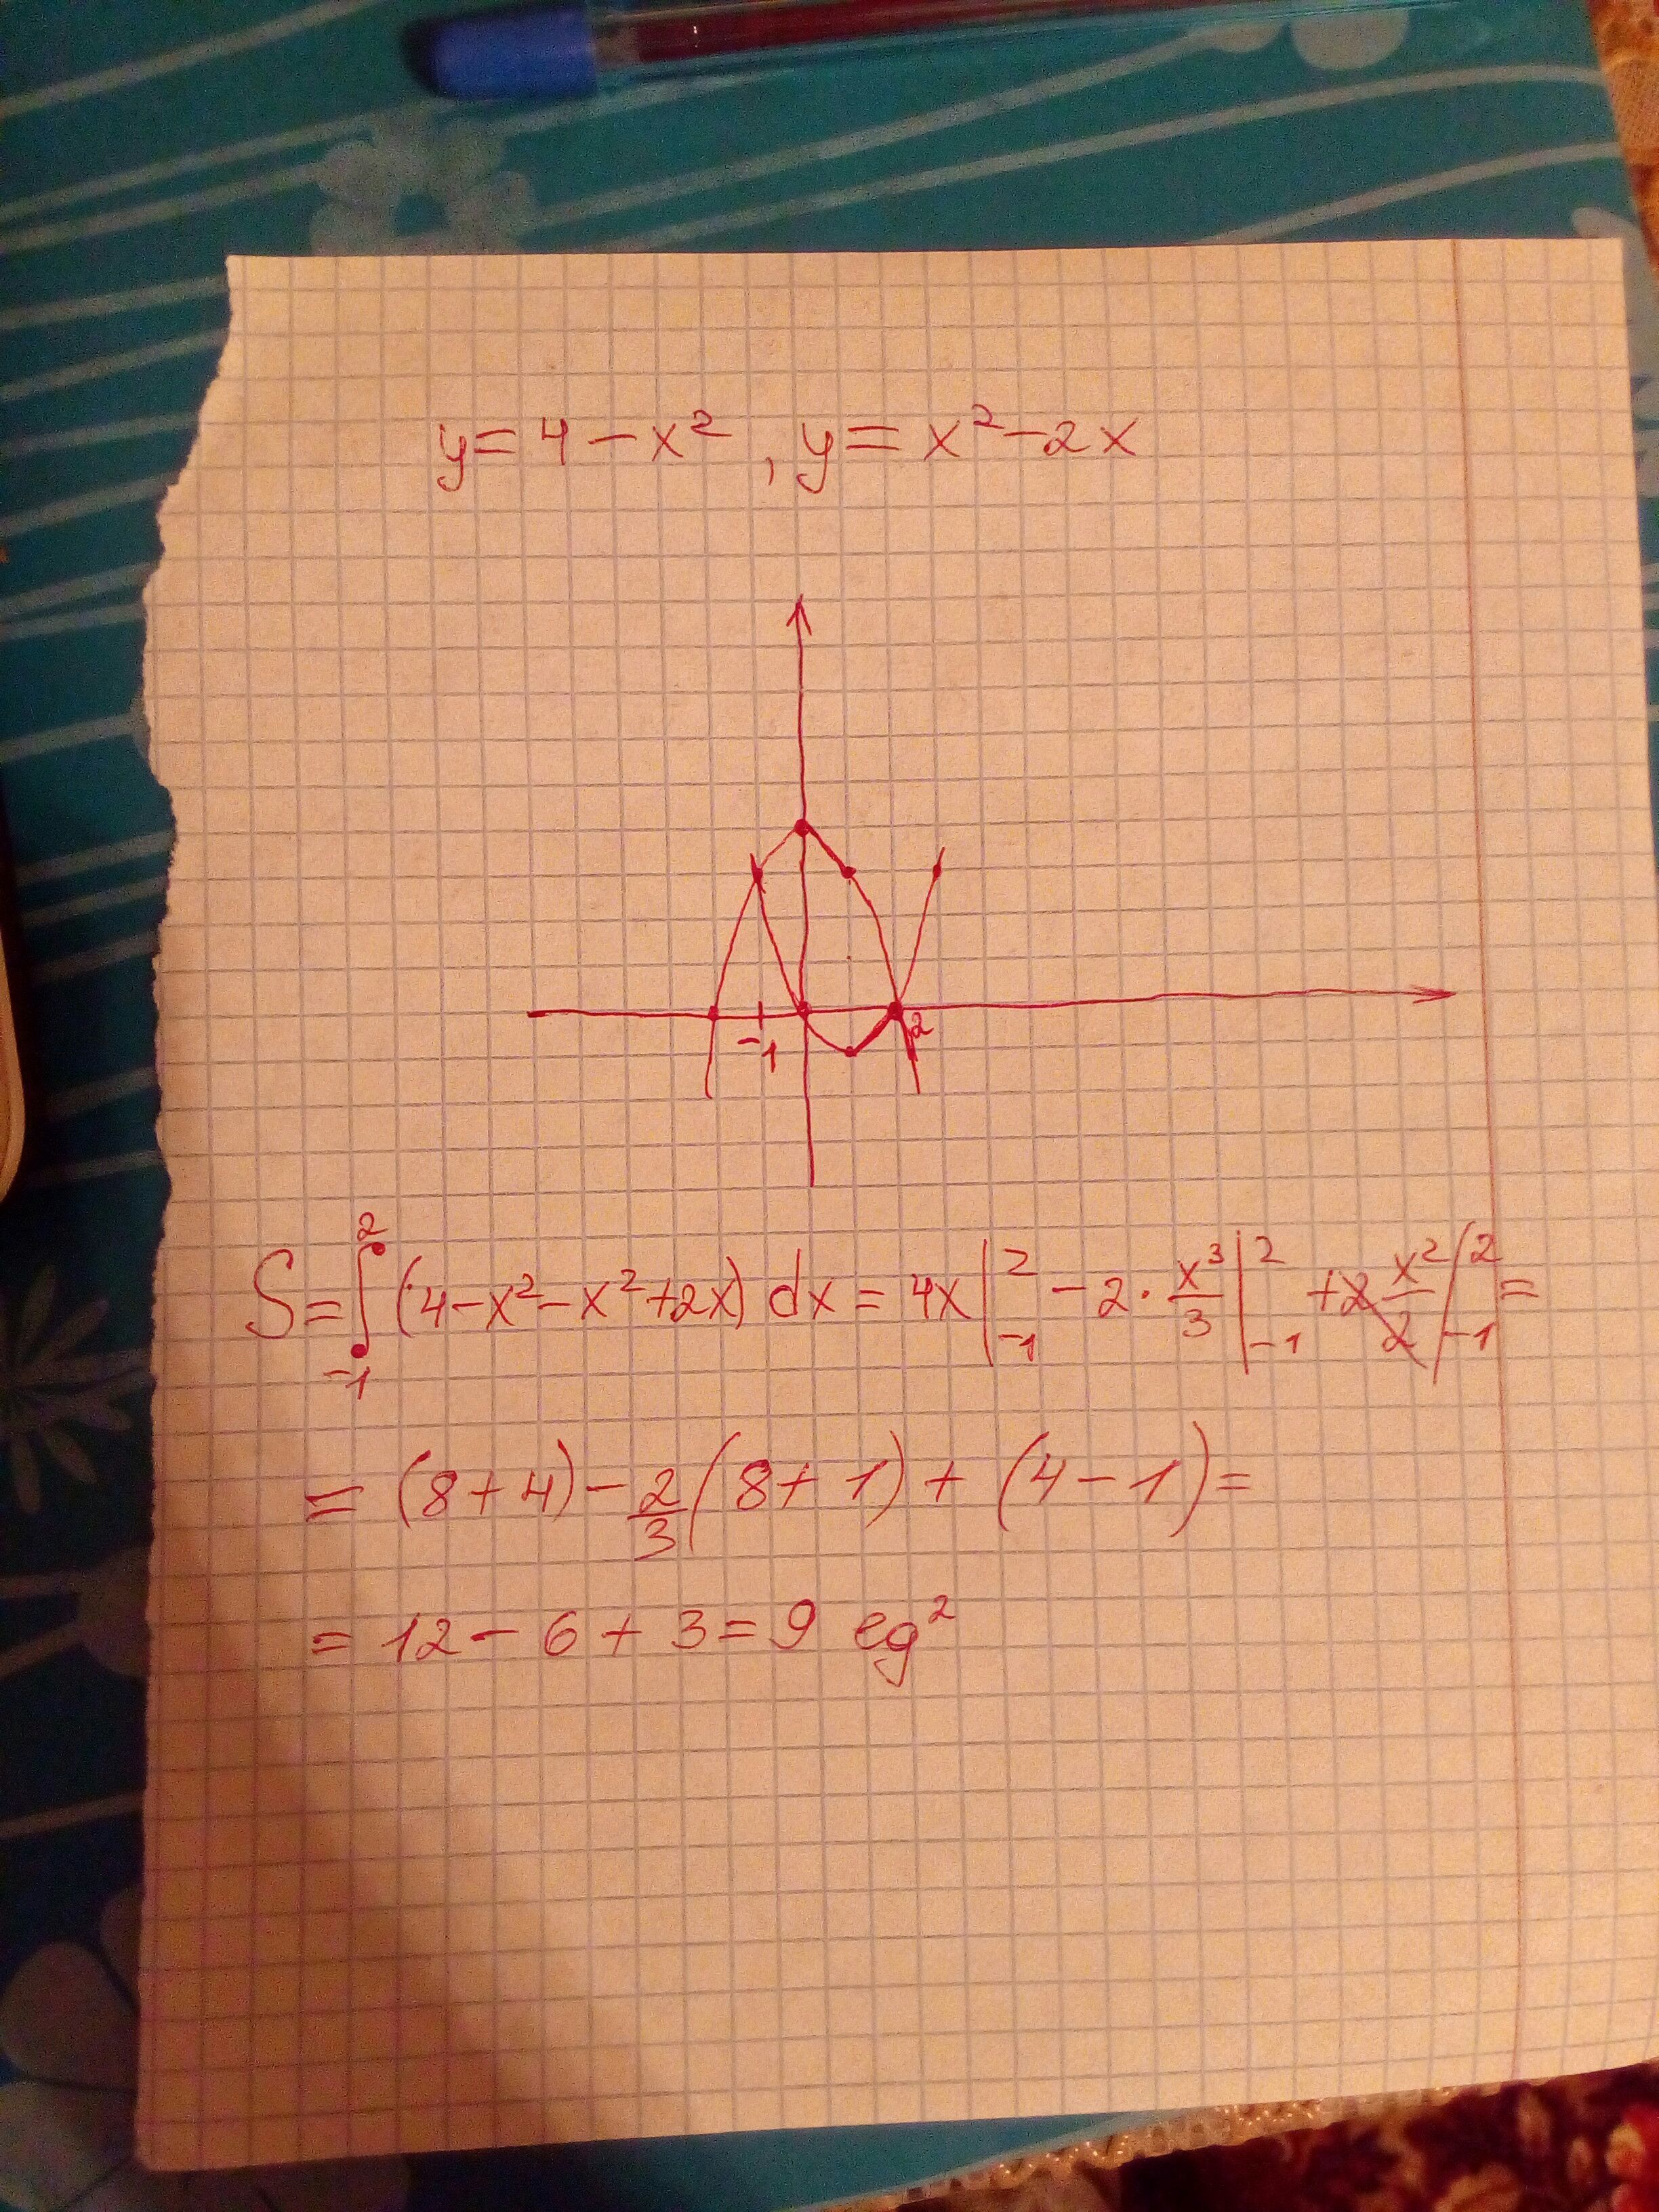 y = 4 − x², y = x² − 2x
−1 2
S = ∫₋₁² (4 − x² − x² + 2x) dx = 4x |₋₁² − 2 · x³/3 |₋₁² + 2 x²/2 |₋₁² =
= (8 + 4) − 2/3 (8 + 1) + (4 − 1) =
= 12 − 6 + 3 = 9 eg²